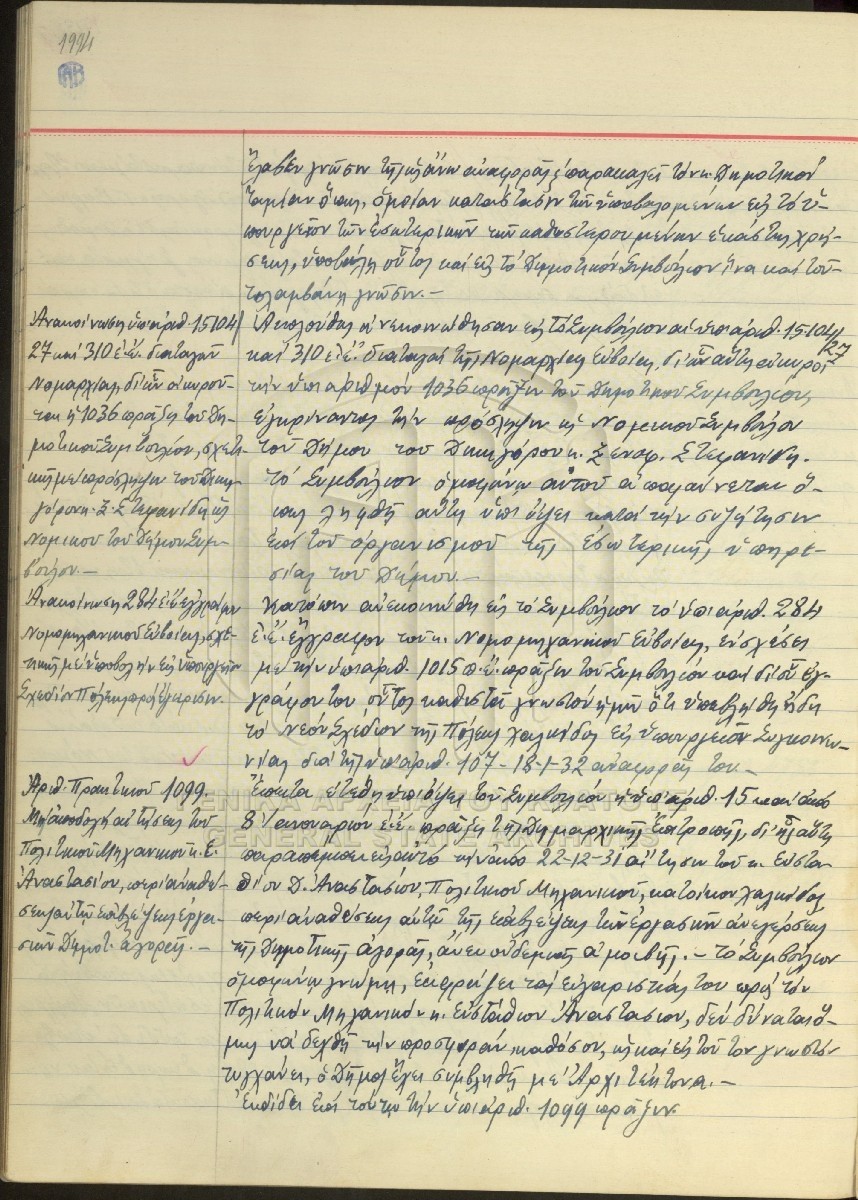 1914
ἔλαβεν γνῶσιν τῆς ὡς ἄνω ἀναφορᾶς, παρακαλεῖ τὸν κ. Δημοτικὸν
Ταμίαν ὅπως, ὁμοίαν κατάστασιν τῶν ὑποβαλλομένων εἰς τὸ Ὑ-
πουργεῖον τῶν Ἐσωτερικῶν τῶν καθυστερουμένων ἑκάστης χρή-
σεως, ὑποβάλῃ οὗτος καὶ εἰς τὸ Δημοτικὸν Συμβούλιον ἵνα καὶ τοῦ-
το λαμβάνῃ γνῶσιν.—
Ἀνακοίνωσις ὑπ' ἀριθ. 15104/
27 καὶ 310 ἐ.ἔ. διαταγῶν
Νομαρχίας, δι' ὧν ἀκυροῦ-
ται ἡ 1036 πρᾶξις τοῦ Δη-
μοτικοῦ Συμβουλίου, σχετι-
κῆς μὲ πρόσληψιν τοῦ Δικη-
γόρου κ. Ξ. Στεφανίδη ὡς
Νομικοῦ τοῦ Δήμου Συμ-
βούλου.—
Ἀκολούθως ἀνεκοινώθησαν εἰς τὸ Συμβούλιον αἱ ὑπ' ἀριθ. 15104/27
καὶ 310 ἐ.ἔ. διαταγαὶ τῆς Νομαρχίας Εὐβοίας, δι' ὧν αὕτη ἀκυροῖ
τὴν ὑπ' ἀριθμὸν 1036 πρᾶξιν τοῦ Δημοτικοῦ Συμβουλίου,
ἐγκρίναντος τὴν πρόσληψιν ὡς Νομικοῦ Συμβούλου
τοῦ Δήμου τοῦ Δικηγόρου κ. Ξενοφ. Στεφανίδη.
τὸ Συμβούλιον ὁμοφώνως αὐτοῦ ἀποφαίνεται ὅ-
πως ληφθῇ αὕτη ὑπ' ὄψει κατὰ τὴν συζήτησιν
ἐπὶ τοῦ ὀργανισμοῦ τῆς ἐσωτερικῆς ὑπηρε-
σίας τοῦ Δήμου.—
Ἀνακοίνωσις 284 ἐ.ἔ. ἐγγράφου
Νομομηχανικοῦ Εὐβοίας, σχε-
τικῆς μὲ ὑποβολὴν εἰς Ὑπουργεῖον
Σχεδίου Πόλεως πρὸς ἔγκρισιν.
Κατόπιν ἀνεκοινώθη εἰς τὸ Συμβούλιον τὸ ὑπ' ἀριθ. 284
ἐ.ἔ. ἔγγραφον τοῦ κ. Νομομηχανικοῦ Εὐβοίας, ἐν σχέσει
μὲ τὴν ὑπ' ἀριθ. 1015 π.ἔ. πρᾶξιν τοῦ Συμβουλίου καὶ δι' οὗ ἐγ-
γράφου του οὗτος καθιστᾷ γνωστὸν ἡμῖν ὅτι ὑπεβλήθη ἤδη
τὸ νέον Σχέδιον τῆς Πόλεως Χαλκίδος εἰς Ὑπουργεῖον Συγκοινω-
νίας διὰ τῆς ὑπ' ἀριθ. 107-18-1-32 ἀναφορᾶς του.—
Ἀριθ. Πρακτικοῦ 1099.
Μὴ ἀποδοχὴ αἰτήσεως τοῦ
Πολιτικοῦ Μηχανικοῦ κ. Ε.
Ἀναστασίου, περὶ ἀναθέ-
σεως αὐτῷ ἐπιβλέψεως ἐργα-
σιῶν Δημοτ. Ἀγορᾶς.—
Ἔπειτα ἐτέθη ὑπ' ὄψει τοῦ Συμβουλίου ἡ ὑπ' ἀριθ. 15 καὶ ἀπὸ
8 Ἰανουαρίου ἐ.ἔ. πρᾶξις τῆς Δημαρχικῆς Ἐπιτροπῆς, δι' ἧς αὕτη
παραπέμπει εἰς αὐτὸ τὴν ἀπὸ 22-12-31 αἴτησιν τοῦ κ. Εὐστα-
θίου Δ. Ἀναστασίου, Πολιτικοῦ Μηχανικοῦ, κατοίκου Χαλκίδος
περὶ ἀναθέσεως αὐτῷ τῆς ἐπιβλέψεως τῶν ἐργασιῶν ἀνεγέρσεως
τῆς Δημοτικῆς ἀγορᾶς, ἄνευ οὐδεμιᾶς ἀμοιβῆς.— τὸ Συμβούλιον
ὁμοφώνῳ γνώμῃ, ἐκφράζει τὰς εὐχαριστίας του πρὸς τὸν
Πολιτικὸν Μηχανικὸν κ. Εὐστάθιον Ἀναστασίου, δὲν δύναται ὅ-
μως νὰ δεχθῇ τὴν προσφοράν, καθόσον, ὡς καὶ εἰς τοῦτον γνωστὸν
τυγχάνει, ὁ Δῆμος ἔχει συμβληθῇ μὲ Ἀρχιτέκτονα.—
Ἐκδίδει ἐπὶ τούτῳ τὴν ὑπ' ἀριθ. 1099 πρᾶξιν.
ΓΕΝΙΚΑ ΑΡΧΕΙΑ ΤΟΥ ΚΡΑΤΟΥΣ
GENERAL STATE ARCHIVES